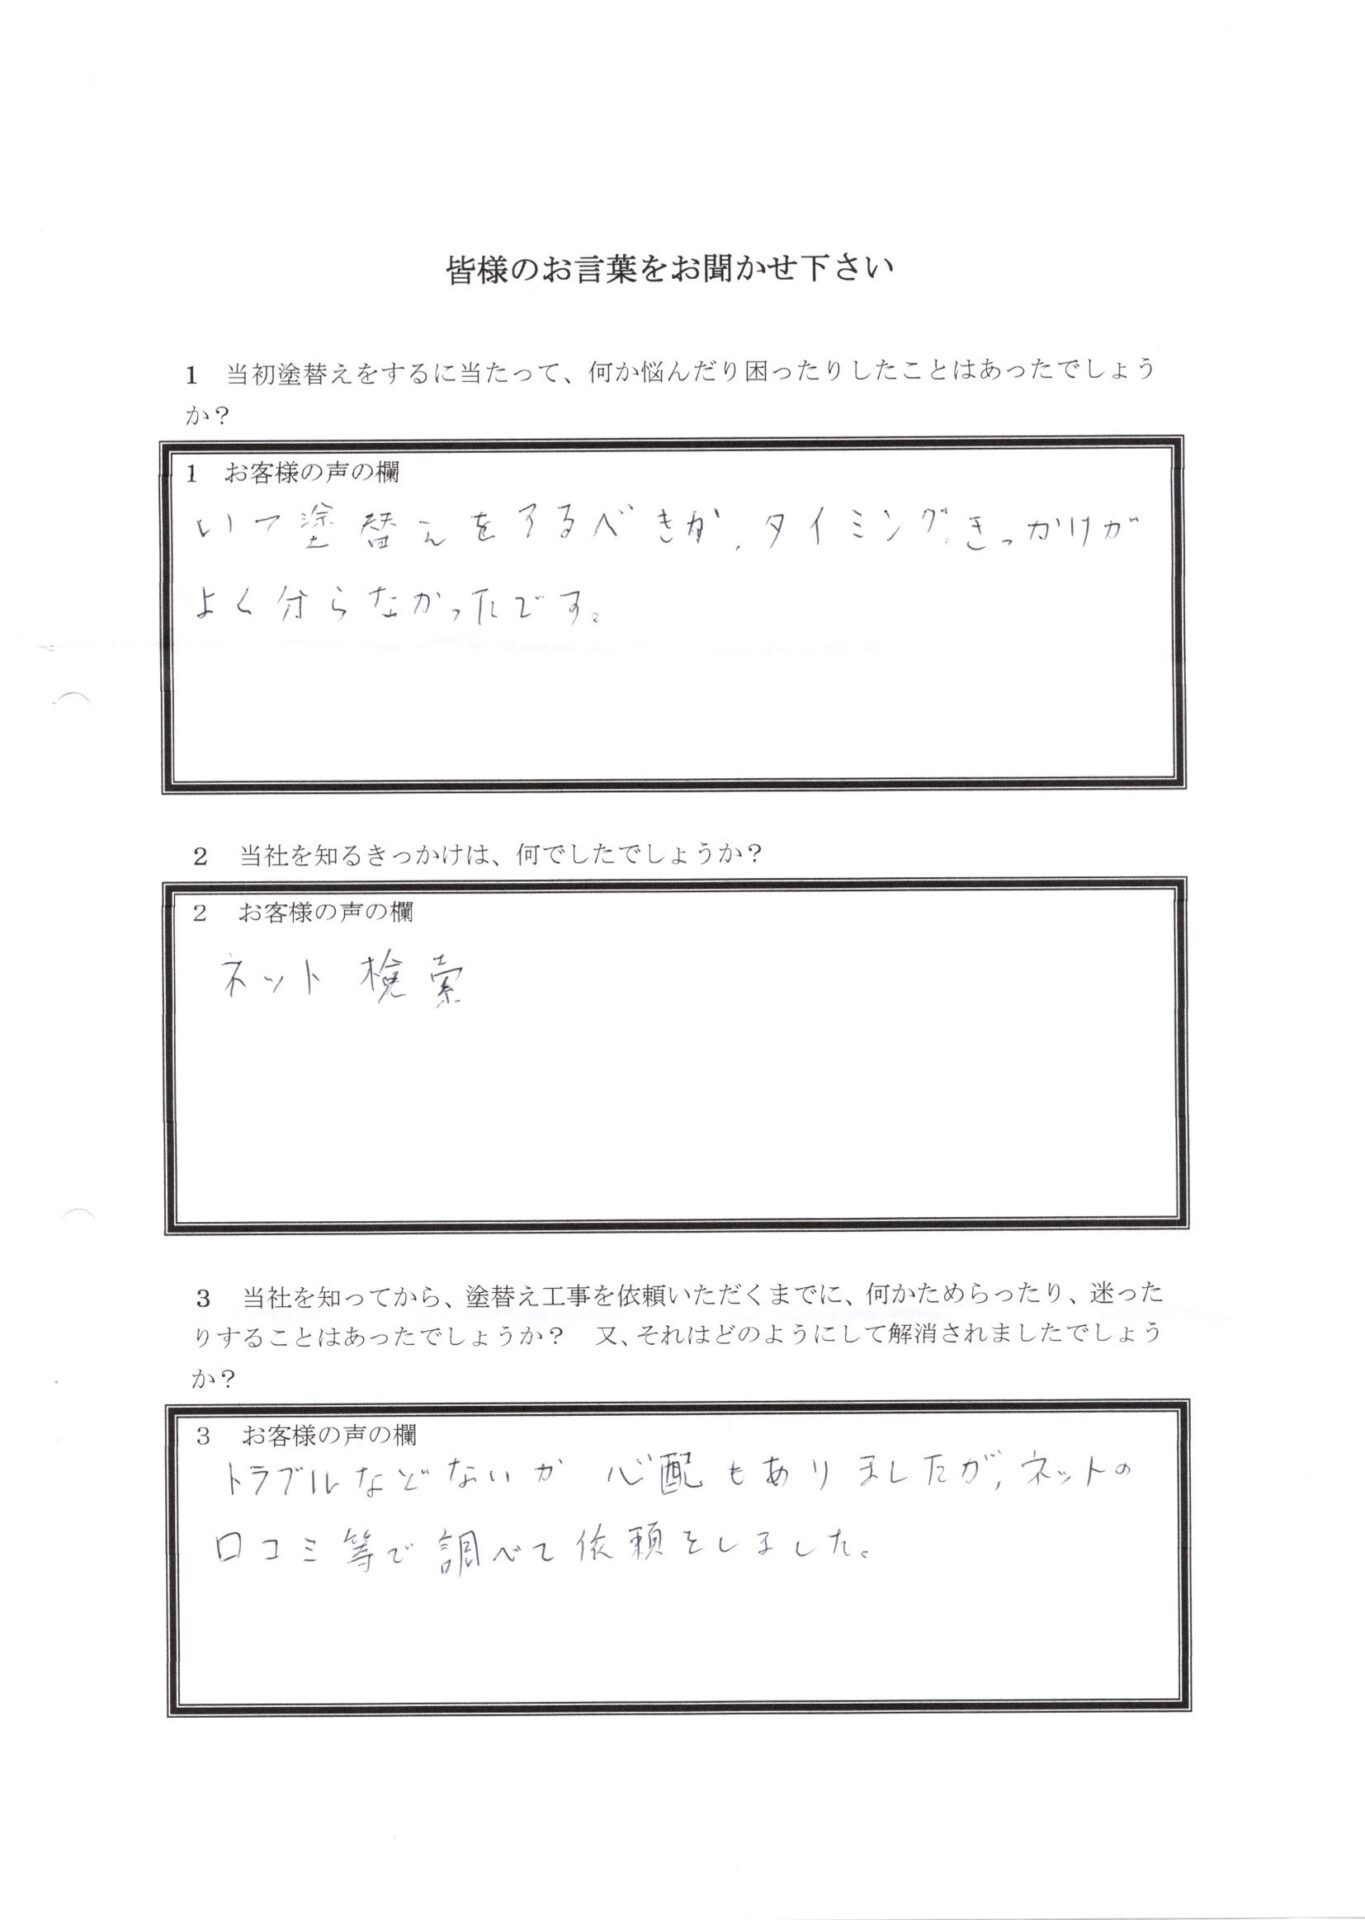 皆様のお言葉をお聞かせ下さい
1　当初塗替えをするに当たって、何か悩んだり困ったりしたことはあったでしょう
か？
1　お客様の声の欄
いつ塗替えをするべきか、タイミング、きっかけが
よく分らなかったです。
2　当社を知るきっかけは、何でしたでしょうか？
2　お客様の声の欄
ネット検索
3　当社を知ってから、塗替え工事を依頼いただくまでに、何かためらったり、迷った
りすることはあったでしょうか？　又、それはどのようにして解消されましたでしょう
か？
3　お客様の声の欄
トラブルなどないか 心配もありましたが、ネットの
口コミ等で調べて依頼をしました。